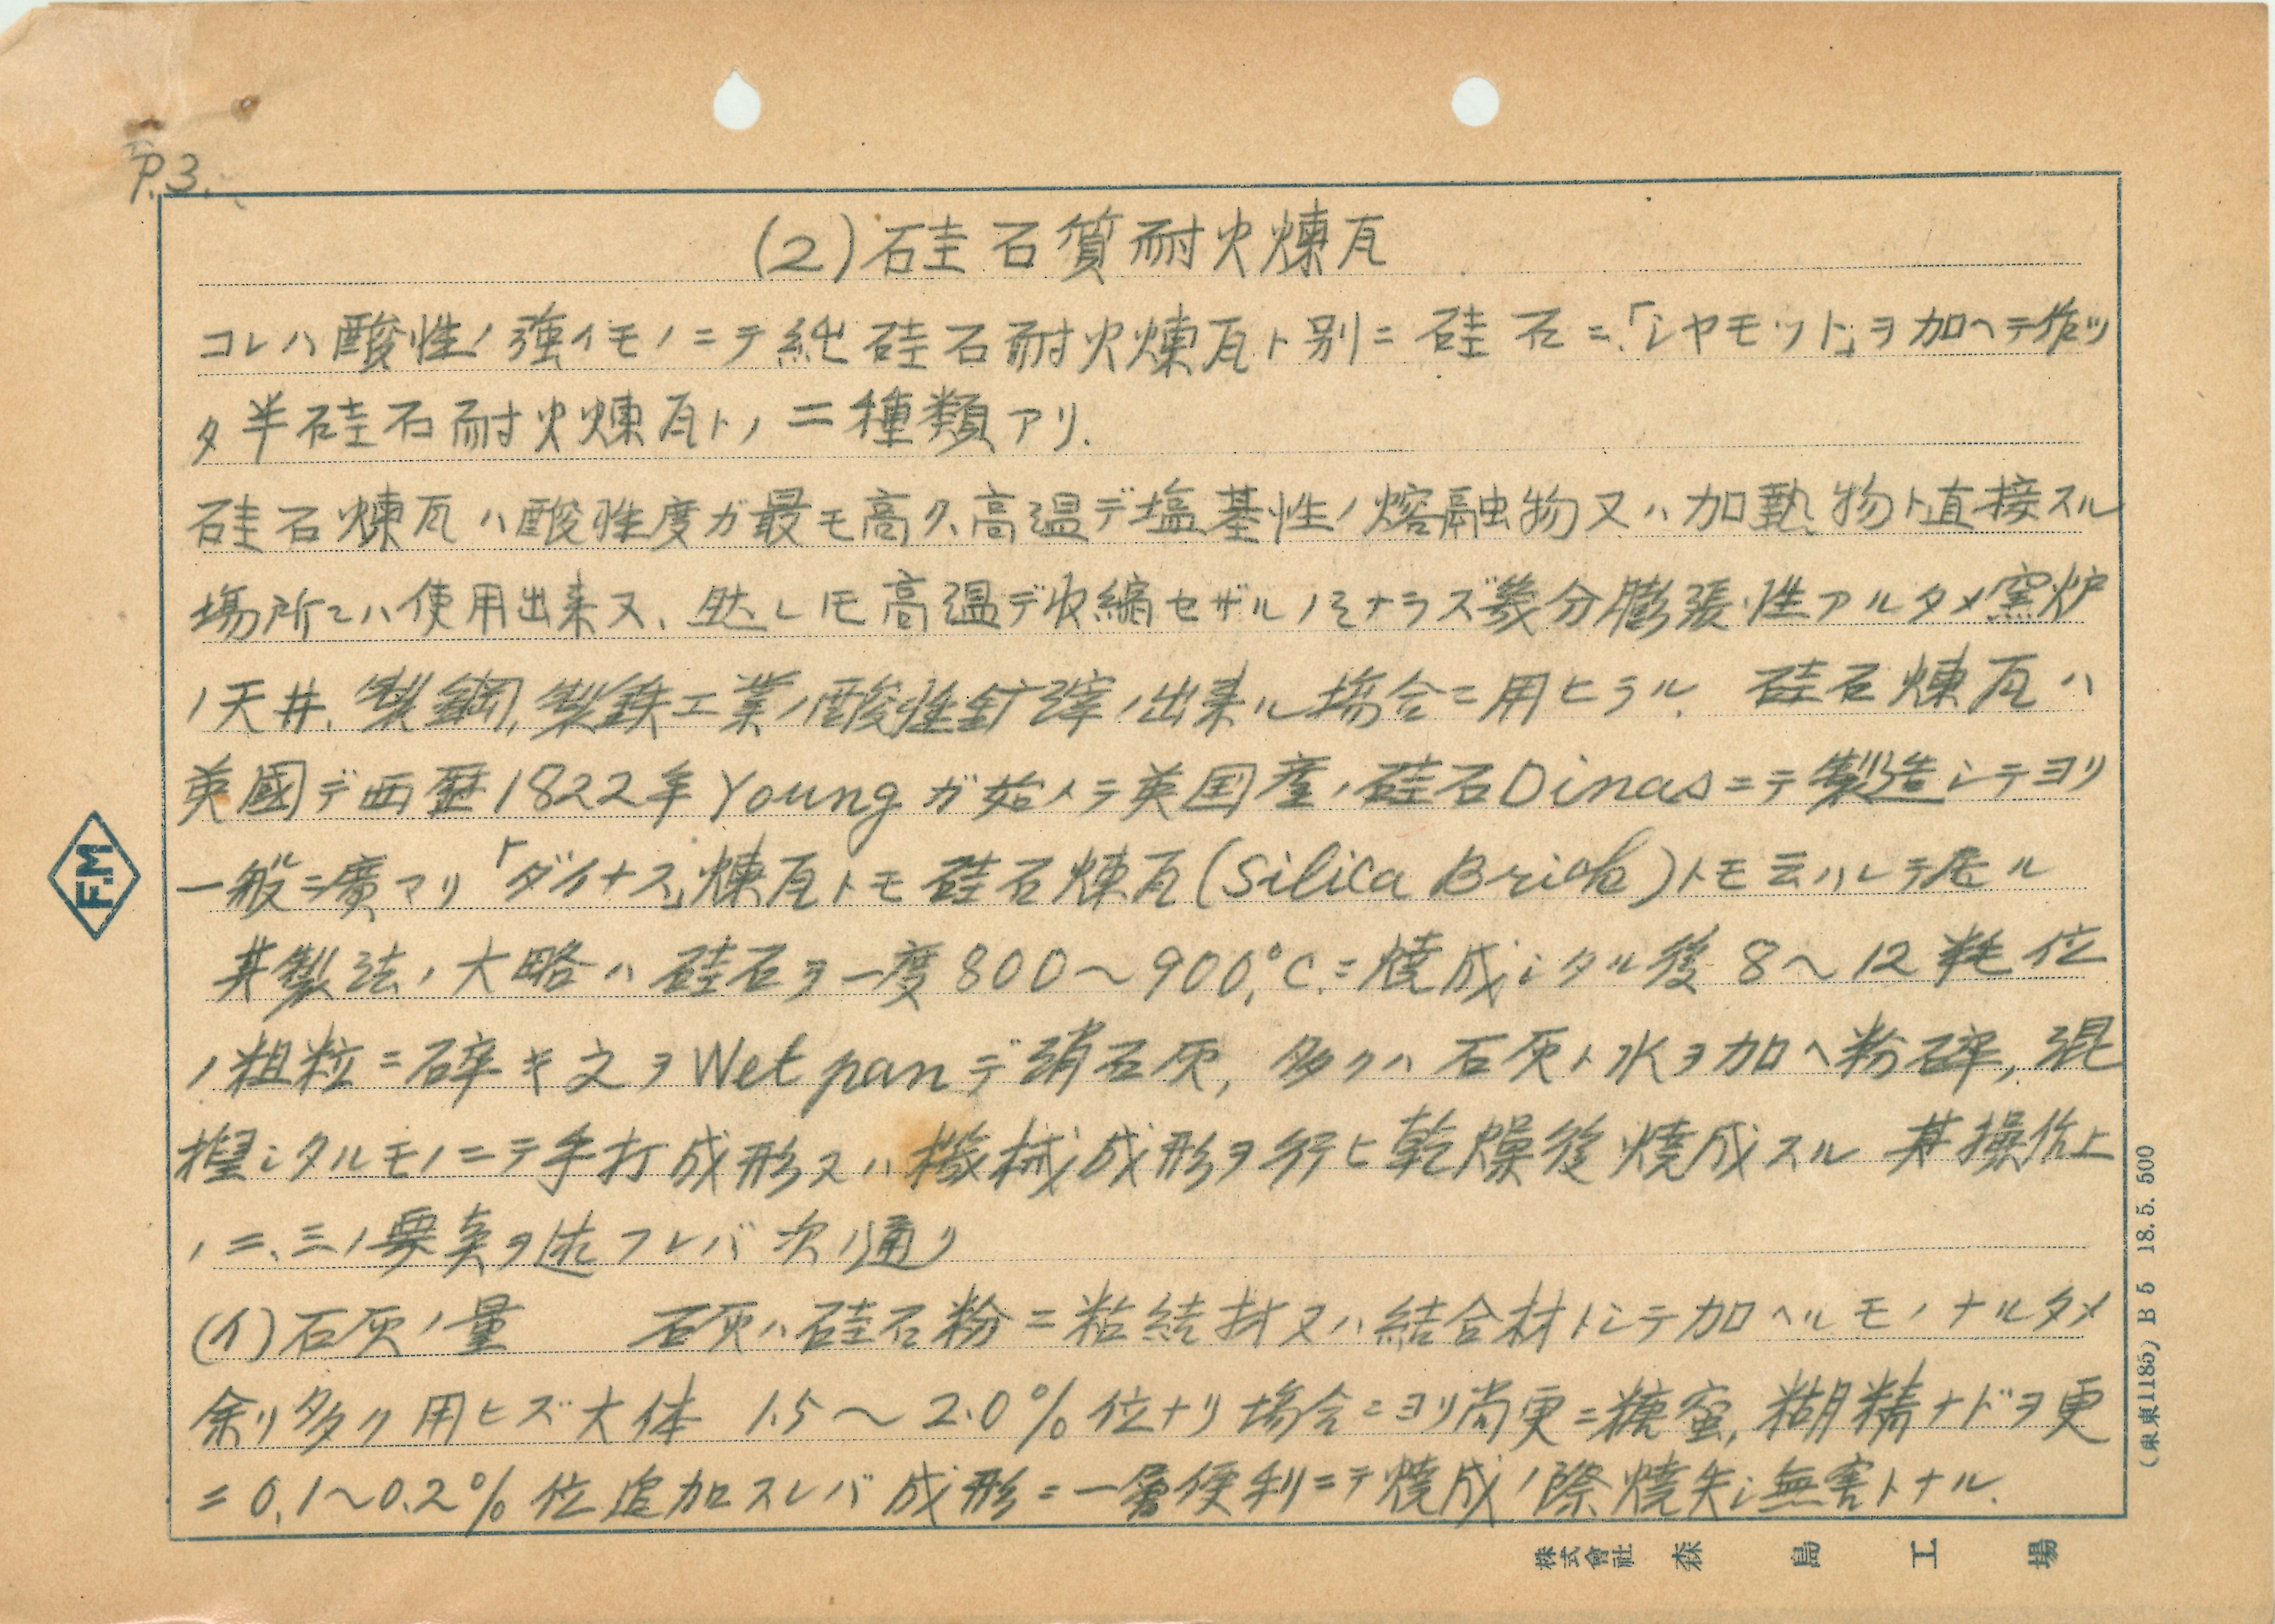 P.3.
(2)硅石質耐火煉瓦
コレハ酸性ノ強イモノニテ純硅石耐火煉瓦ト別ニ硅石ニ「シヤモット」ヲ加ヘテ作ッ
タ半硅石耐火煉瓦トノ二種類アリ.
硅石煉瓦ハ酸性度ガ最モ高ク、高温デ塩基性ノ熔融物又ハ加熱物ト直接スル
場所ニハ使用出来ヌ、然シ乍モ高温デ収縮セザルノミナラズ幾分膨張性アルタメ窯炉
ノ天井、製鋼、製鉄工業ノ酸性鉱滓ノ出来ル場合ニ用ヒラル. 硅石煉瓦ハ
英國デ西歴1822年Youngガ始メテ英国産ノ硅石Dinasニテ製造シテヨリ
一般ニ廣マリ「ダイナス」煉瓦トモ硅石煉瓦(Silica Brick)トモ云ハレテ居ル
其製法ノ大略ハ硅石ヲ一度800〜900°C.ニ焼成シタル後8〜12粍位
ノ粗粒ニ碎キ之ヲWet panデ消石灰, 多クハ石灰ト水ヲ加ヘ粉碎, 混
捏シタルモノニテ手打成形又ハ機械成形ヲ行ヒ乾燥後焼成スル 其操作上
ノ二、三ノ要素ヲ述フレバ次ノ通リ
(イ)石灰ノ量 石灰ハ硅石粉ニ粘結材又ハ結合材トシテ加ヘルモノナルタメ
余リ多ク用ヒズ大体 1.5〜2.0%位ナリ場合ニヨリ尚更ニ糖蜜, 糊精ナドヲ更
ニ0.1〜0.2%位追加スレバ成形ニ一層便利ニテ焼成ノ際焼失シ無害トナル.
F.M
(東東1185) B5 18.5.500
株式會社 森島工場